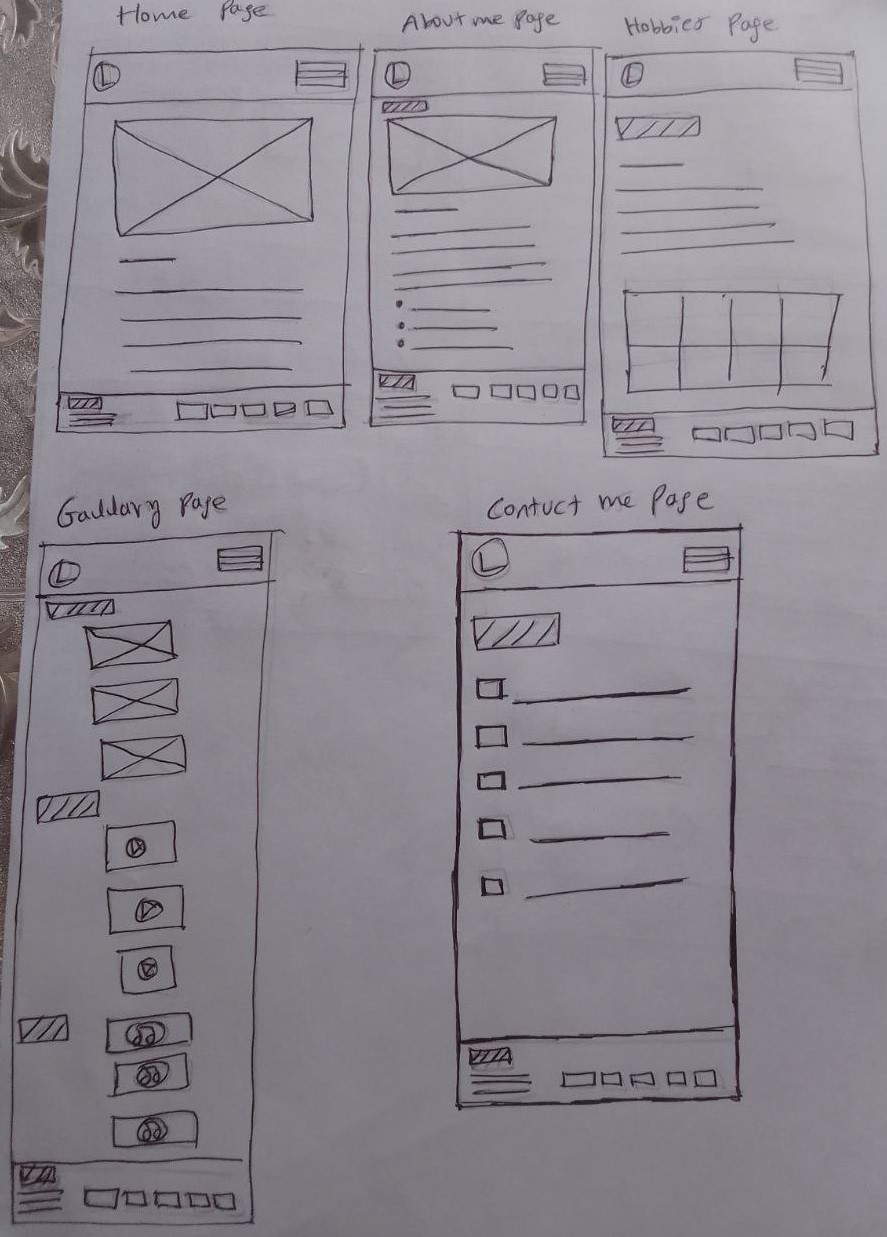 Home Page
About me Page
Hobbies Page
L
L
L
Gallary Page
Contuct me Page
L
L